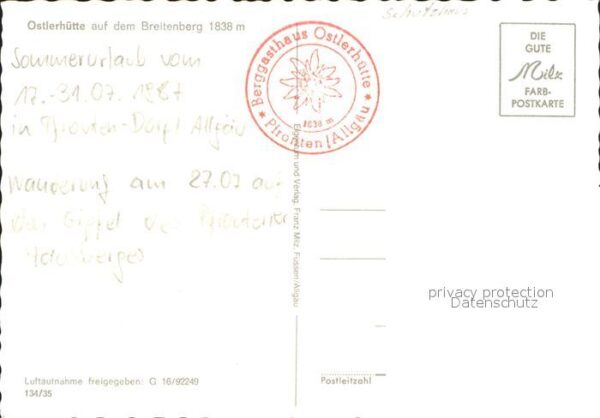 Ostlerhütte auf dem Breitenberg 1838 m
Schutzhaus
Sommerurlaub vom
17.-31.07.1987
in Pfronten-Dorf / Allgäu
Wanderung am 27.07 auf
den Gipfel des Pfrontener
Berggasthaus Ostlerhütte
1838 m
Pfronten/Allgäu
DIE
GUTE
Milz
FARB-
POSTKARTE
Eigentum und Verlag: Franz Milz, Füssen/Allgäu
privacy protection
Datenschutz
Postleitzahl
Luftaufnahme freigegeben: G 16/92249
134/35